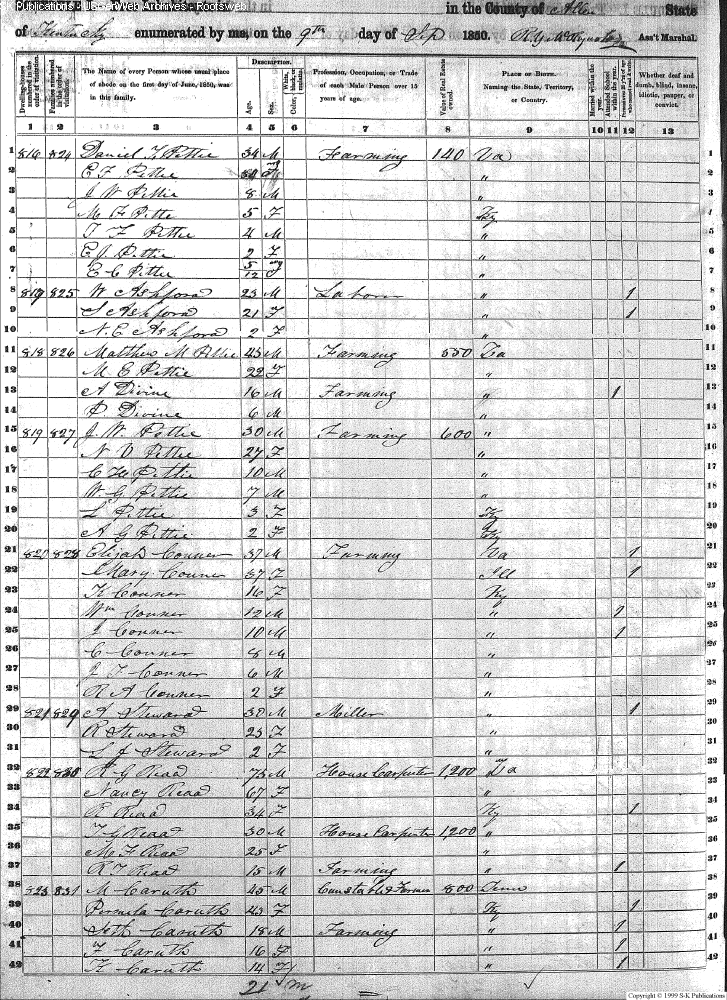 Publications - USGenWeb Archives - Rootsweb
in the County of Allen State
of Kentucky enumerated by me, on the 9th day of Sep 1850. Ass't Marshal.
Dwelling-houses numbered in the order of visitation. Families numbered in the order of visitation. The Name of every Person whose usual place of abode on the first day of June, 1850, was in this family. Description. Age. Sex. Color, White, black, or mulatto. Profession, Occupation, or Trade of each Male Person over 15 years of age. Value of Real Estate owned. Place of Birth. Naming the State, Territory, or Country. Married within the year. Attended School within the year. Whether deaf and dumb, blind, insane, idiotic, pauper, or convict.
1 2 3 4 5 6 7 8 9 10 11 12 13
1 816 824 Daniel T. Pettie 34 M Farming 140 Va 1
2 E F Pettie " 2
3 J W Pettie 8 M " 3
4 M F Pettie 5 F Ky 4
5 T F Pettie 4 M " 5
6 E J Pettie 2 F " 6
7 E C Pettie 5/12 " 7
8 825 W Ashford 23 M Laborer " 1 8
9 S Ashford 21 F " 1 9
10 N. E Ashford 2 F " 10
11 818 826 Matthew M Pettie 43 M Farming 550 Va 11
12 M E Pettie 22 F " 12
13 A Divine 16 M Farming " 1 13
14 P Divine 6 M " 14
15 819 827 J. W. Pettie 30 M Farming 600 " 15
16 N V Pettie 27 F " 16
17 C H Pettie 10 M " 17
18 W G Pettie 7 M " 18
19 L Pettie 3 F Ky 19
20 A G Pettie 2 F Ky 20
21 820 828 Elijah Conner 37 M Farming Va 1 21
22 Mary Conner 37 F Ill 1 22
23 K Conner 16 F Ky 23
24 Wm Conner 12 M " 1 24
25 J Conner 10 M " 1 25
26 C Conner 8 M " 26
27 J T Conner 6 M " 27
28 R A Conner 2 F " 28
29 821 829 A Steward 30 M Miller " 1 29
30 R Steward 23 F " 30
31 L J Steward 2 F " 31
32 822 830 R G Read 75 M House Carpenter 1,200 Va 32
33 Nancy Read 67 F " 33
34 R Read 34 F Ky 1 34
35 T G Read 30 M House Carpenter 1,200 " 35
36 M F Read 25 F " 36
37 R T Read 15 M Farming " 1 37
38 823 831 M Caruth 45 M Constable & Farmer 800 Tenn 38
39 Permela Caruth 43 F Ky 1 39
40 Seth Caruth 18 M Farming " 1 40
41 F Caruth 16 F " 1 41
42 K Caruth 14 F " 1 42
21 M
Copyright © 1999 S-K Publications